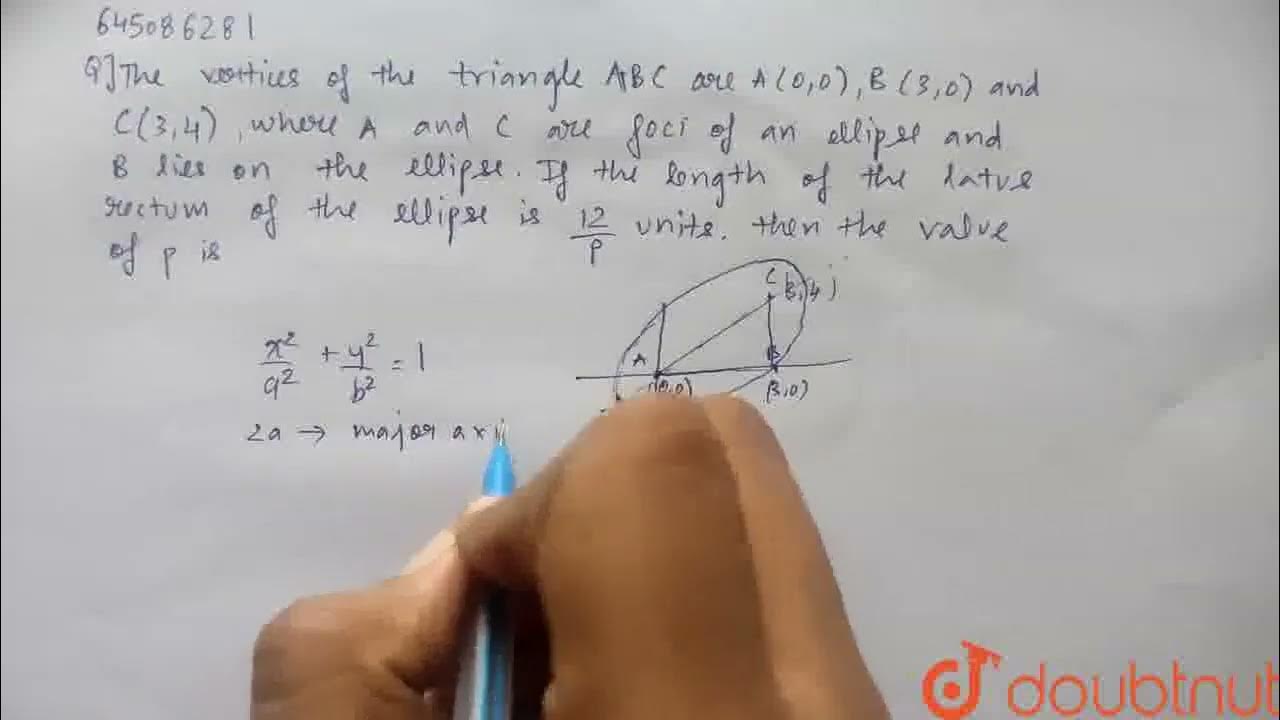 645086281
Q] The vertices of the triangle ABC are A(0,0), B(3,0) and
C(3,4), where A and C are foci of an ellipse and
B lies on the ellipse. If the length of the latus
rectum of the ellipse is 12/P units. then the value
of p is
C(3,4)
x²/a² + y²/b² = 1
A
B
(0,0)
(3,0)
2a → major axi
doubtnut